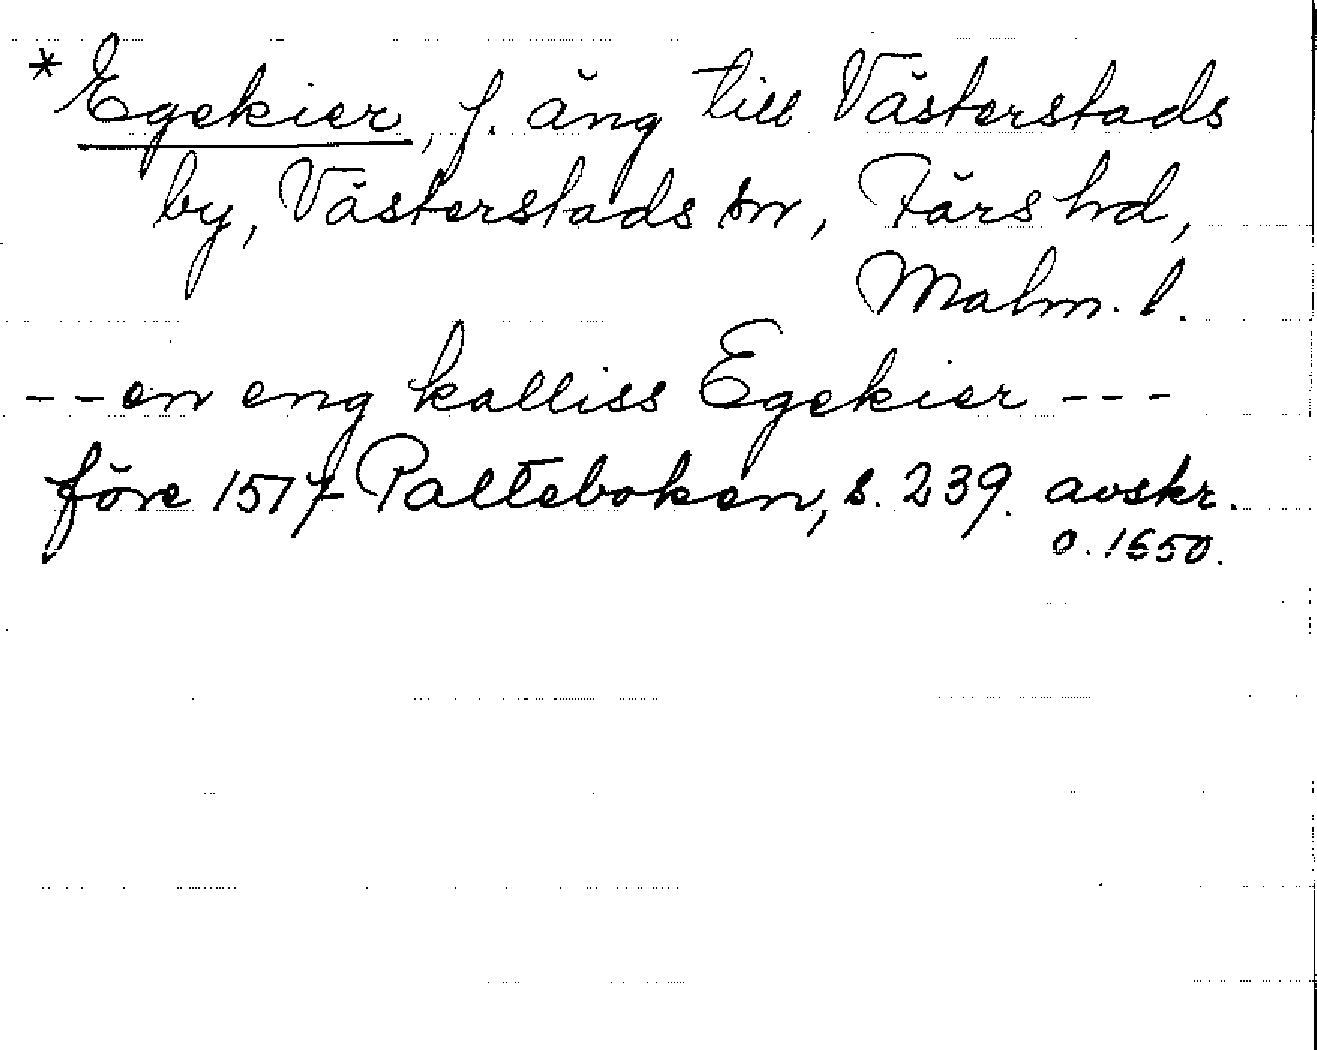 *Egekier, f. äng till Västerstads
by, Västerstads sn, Färs hd,
Malm. l.
--en eng kalliss Egekier ---
före 1517 Palteboken, s. 239. avskr.
o. 1650.